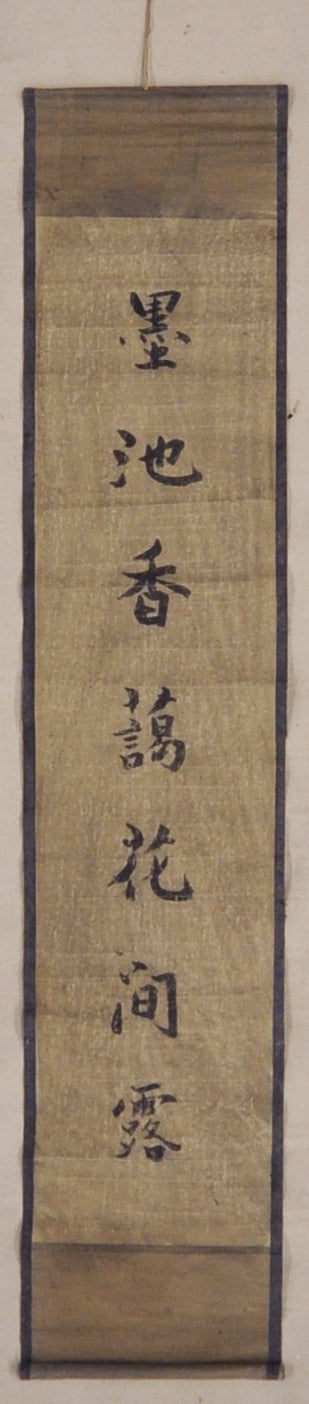 墨池香藹花間露